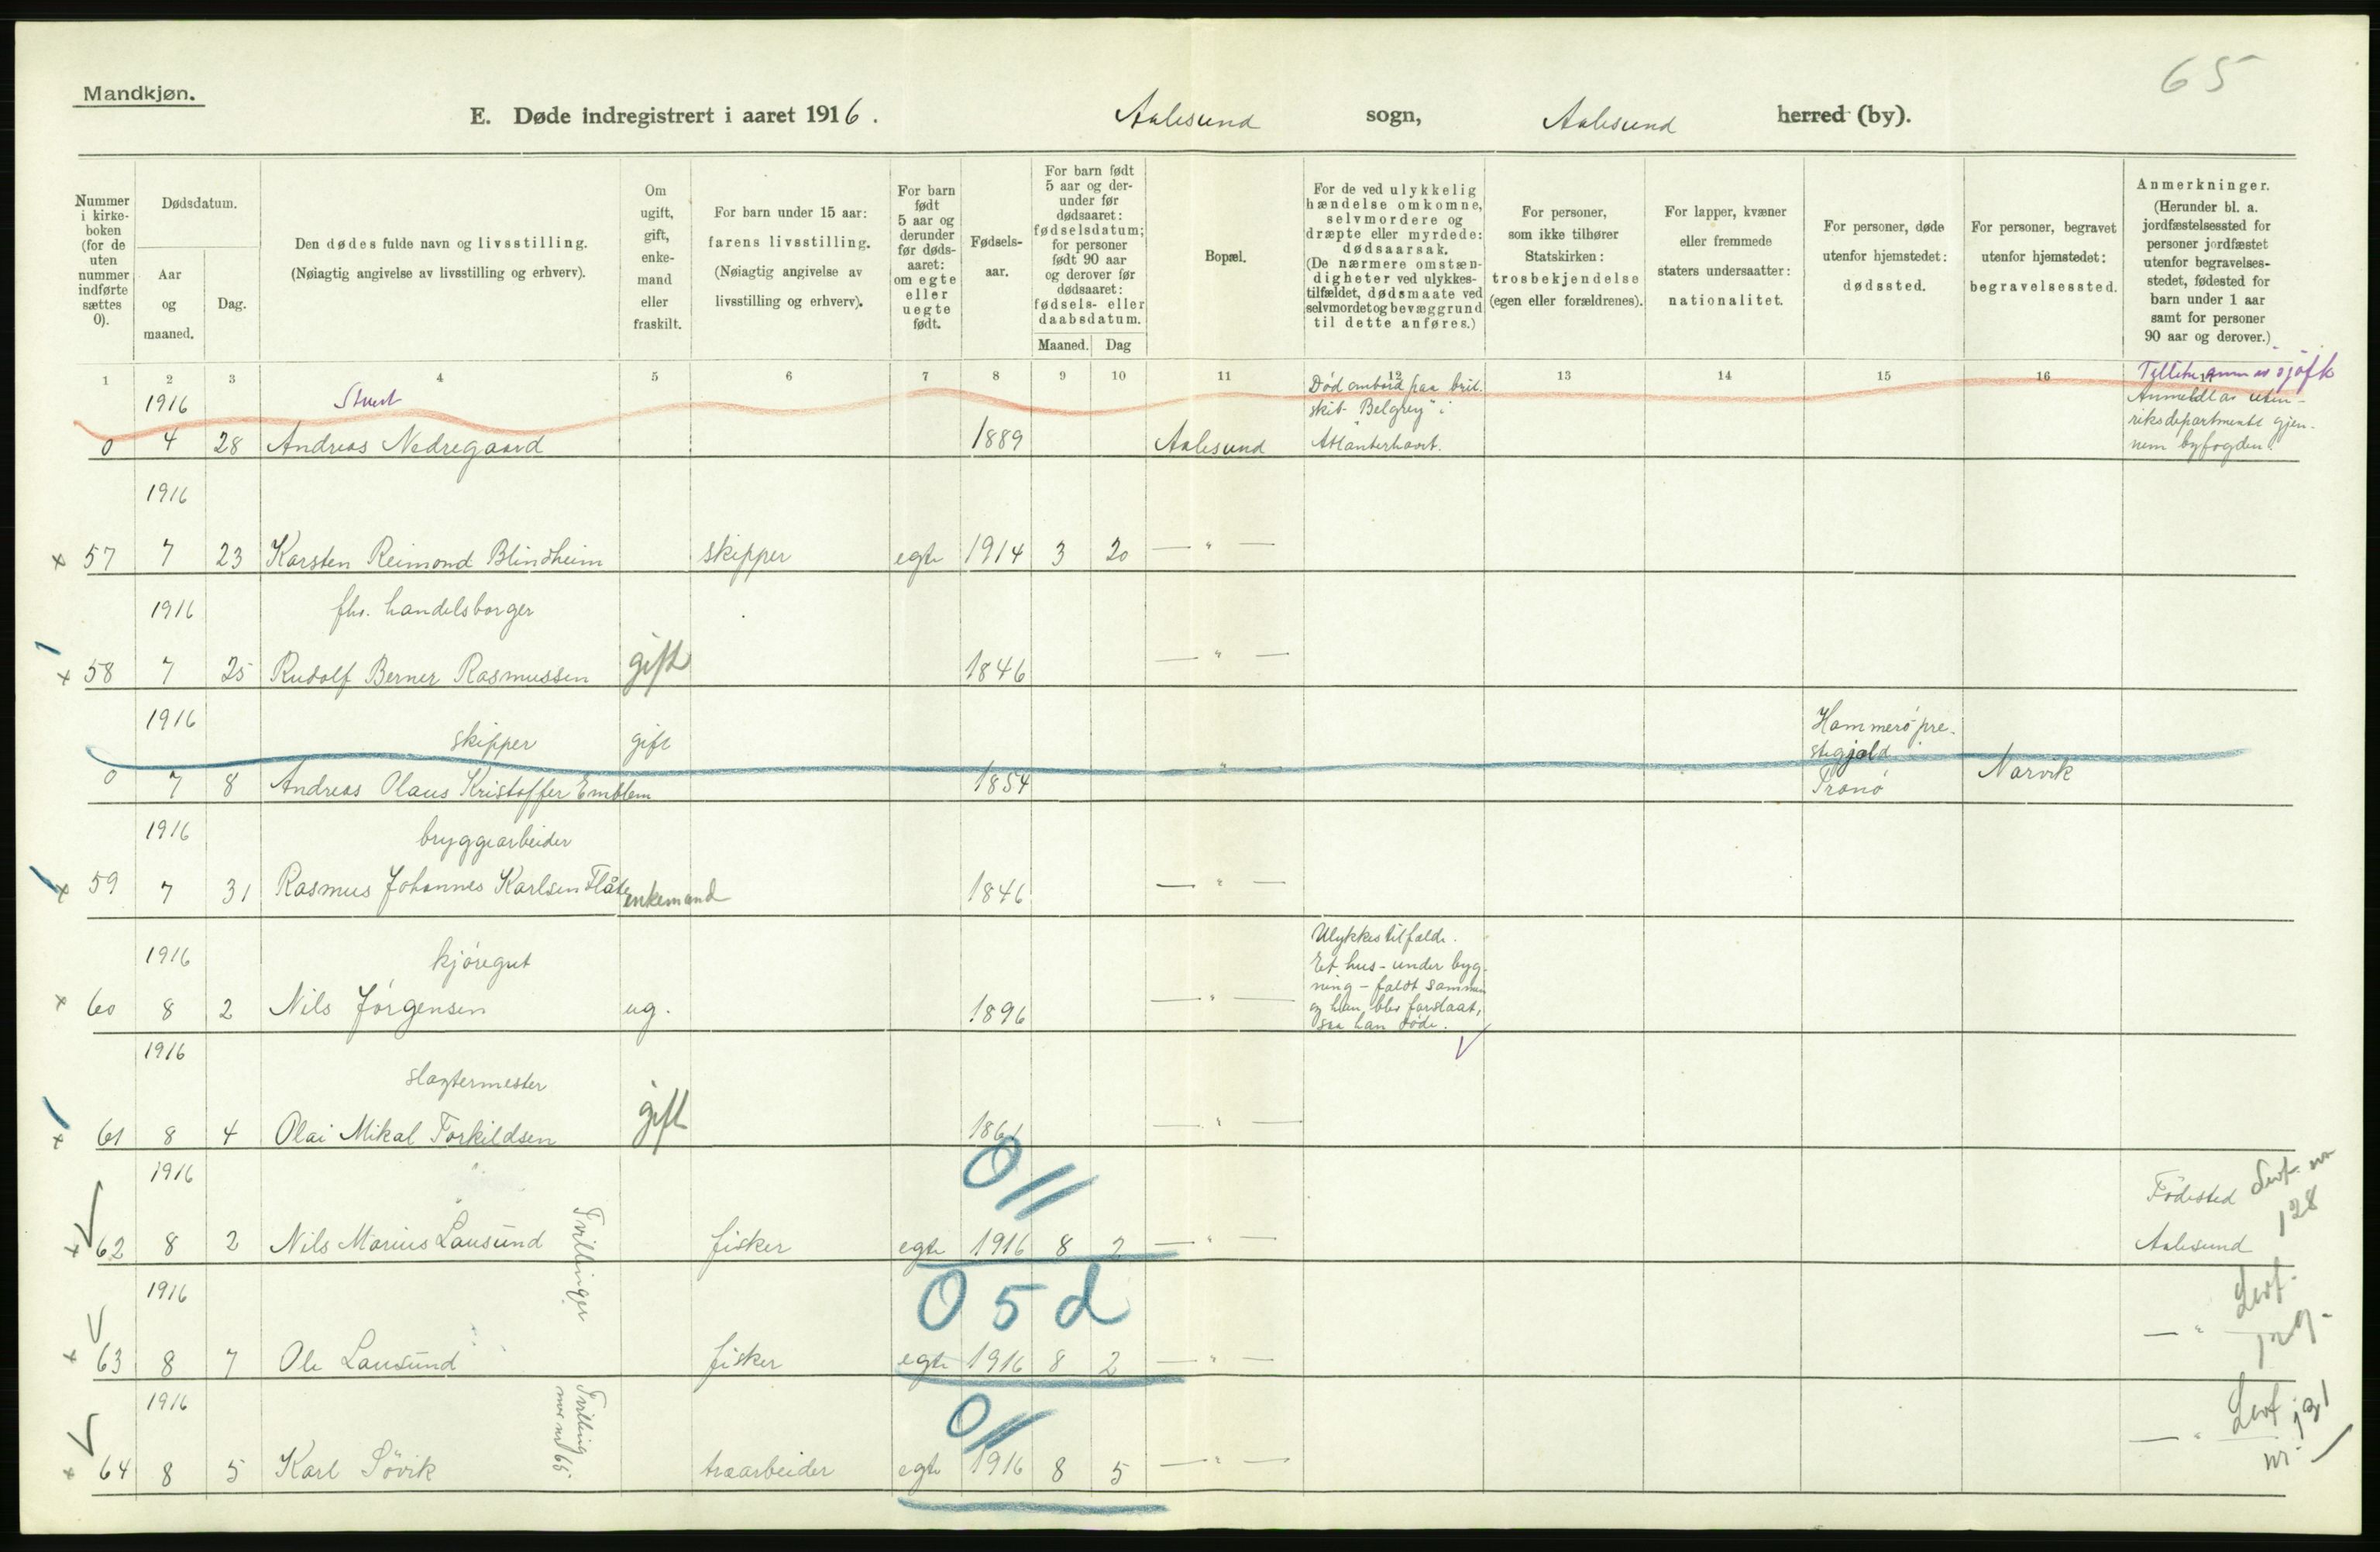 65
Mandkjøn.
E. Døde indregistrert i aaret 1916. Aalesund sogn, Aalesund herred (by).
Nummer
i kirke-
boken
(for de
uten
nummer
indførte
sættes
0).
Dødsdatum.
Aar
og
maaned.
Dag.
Den dødes fulde navn og livsstilling.
(Nøiagtig angivelse av livsstilling og erhverv).
Om
ugift,
gift,
enke-
mand
eller
fraskilt.
For barn under 15 aar:
farens livsstilling.
(Nøiagtig angivelse av
livsstilling og erhverv).
For barn
født
5 aar og
derunder
før døds-
aaret:
om egte
eller
uegte
født.
Fødsels-
aar.
For barn født
5 aar og der-
under før
dødsaaret:
fødselsdatum;
for personer
født 90 aar
og derover før
dødsaaret:
fødsels- eller
daabsdatum.
Maaned. Dag
Bopæl.
For de ved ulykkelig
hændelse omkomne,
selvmordere og
dræpte eller myrdede:
dødsaarsak.
(De nærmere omstæn-
digheter ved ulykkes-
tilfældet, dødsmaate ved
selvmordet og bevæggrund
til dette anføres.)
For personer,
som ikke tilhører
Statskirken:
trosbekjendelse
(egen eller forældrenes).
For lapper, kvæner
eller fremmede
staters undersaatter:
nationalitet.
For personer, døde
utenfor hjemstedet:
dødssted.
For personer, begravet
utenfor hjemstedet:
begravelsessted.
Anmerkninger.
(Herunder bl. a.
jordfæstelsessted for
personer jordfæstet
utenfor begravelses-
stedet, fødested for
barn under 1 aar
samt for personer
90 aar og derover.)
1 2 3 4 5 6 7 8 9 10 11 12 13 14 15 16 17
1916 Stuert Død ombord paa brit.
skib "Belgrey" i Anmeldt av uten-
riksdepartementet gjen-
0 4 28 Andreas Nedregaard 1889 Aalesund Atlanterhavet. nem byfogden.
1916
x 57 7 23 Karsten Reimond Blindheim skipper egte 1914 3 20 — " —
1916 fhv. handelsborger
x 58 7 25 Rudolf Berner Rasmussen gift 1846 — " —
1916 skipper gift Hammerö pre-
stegjæld
0 7 8 Andreas Olaus Kristoffer Emblem 1854 " Tranö Narvik
1916 bryggearbeider
x 59 7 31 Rasmus Johannes Karlsen Flåte enkemand 1846 — " —
1916 kjöregut Ulykkestilfælde.
Et hus - under byg-
ning - faldt sammen
og han blev forslaat,
x 60 8 2 Nils Jörgensen ug. 1896 — " — saa han döde.
1916 slagtermester
x 61 8 4 Olai Mikal Torkildsen gift 1861 — " —
1916 0 // Födested Levf. nr
128
x 62 8 2 Nils Marius Lausund Tvillinger fisker egte 1916 8 2 — " — Aalesund
1916 0 5 d Levf.
129
x 63 8 7 Ole Lausund fisker egte 1916 8 2 — " — — " —
1916 0 // Tvilling
med nr 65 Levf
nr. 131
x 64 8 5 Karl Sövik træarbeider egte 1916 8 5 — " — — " —